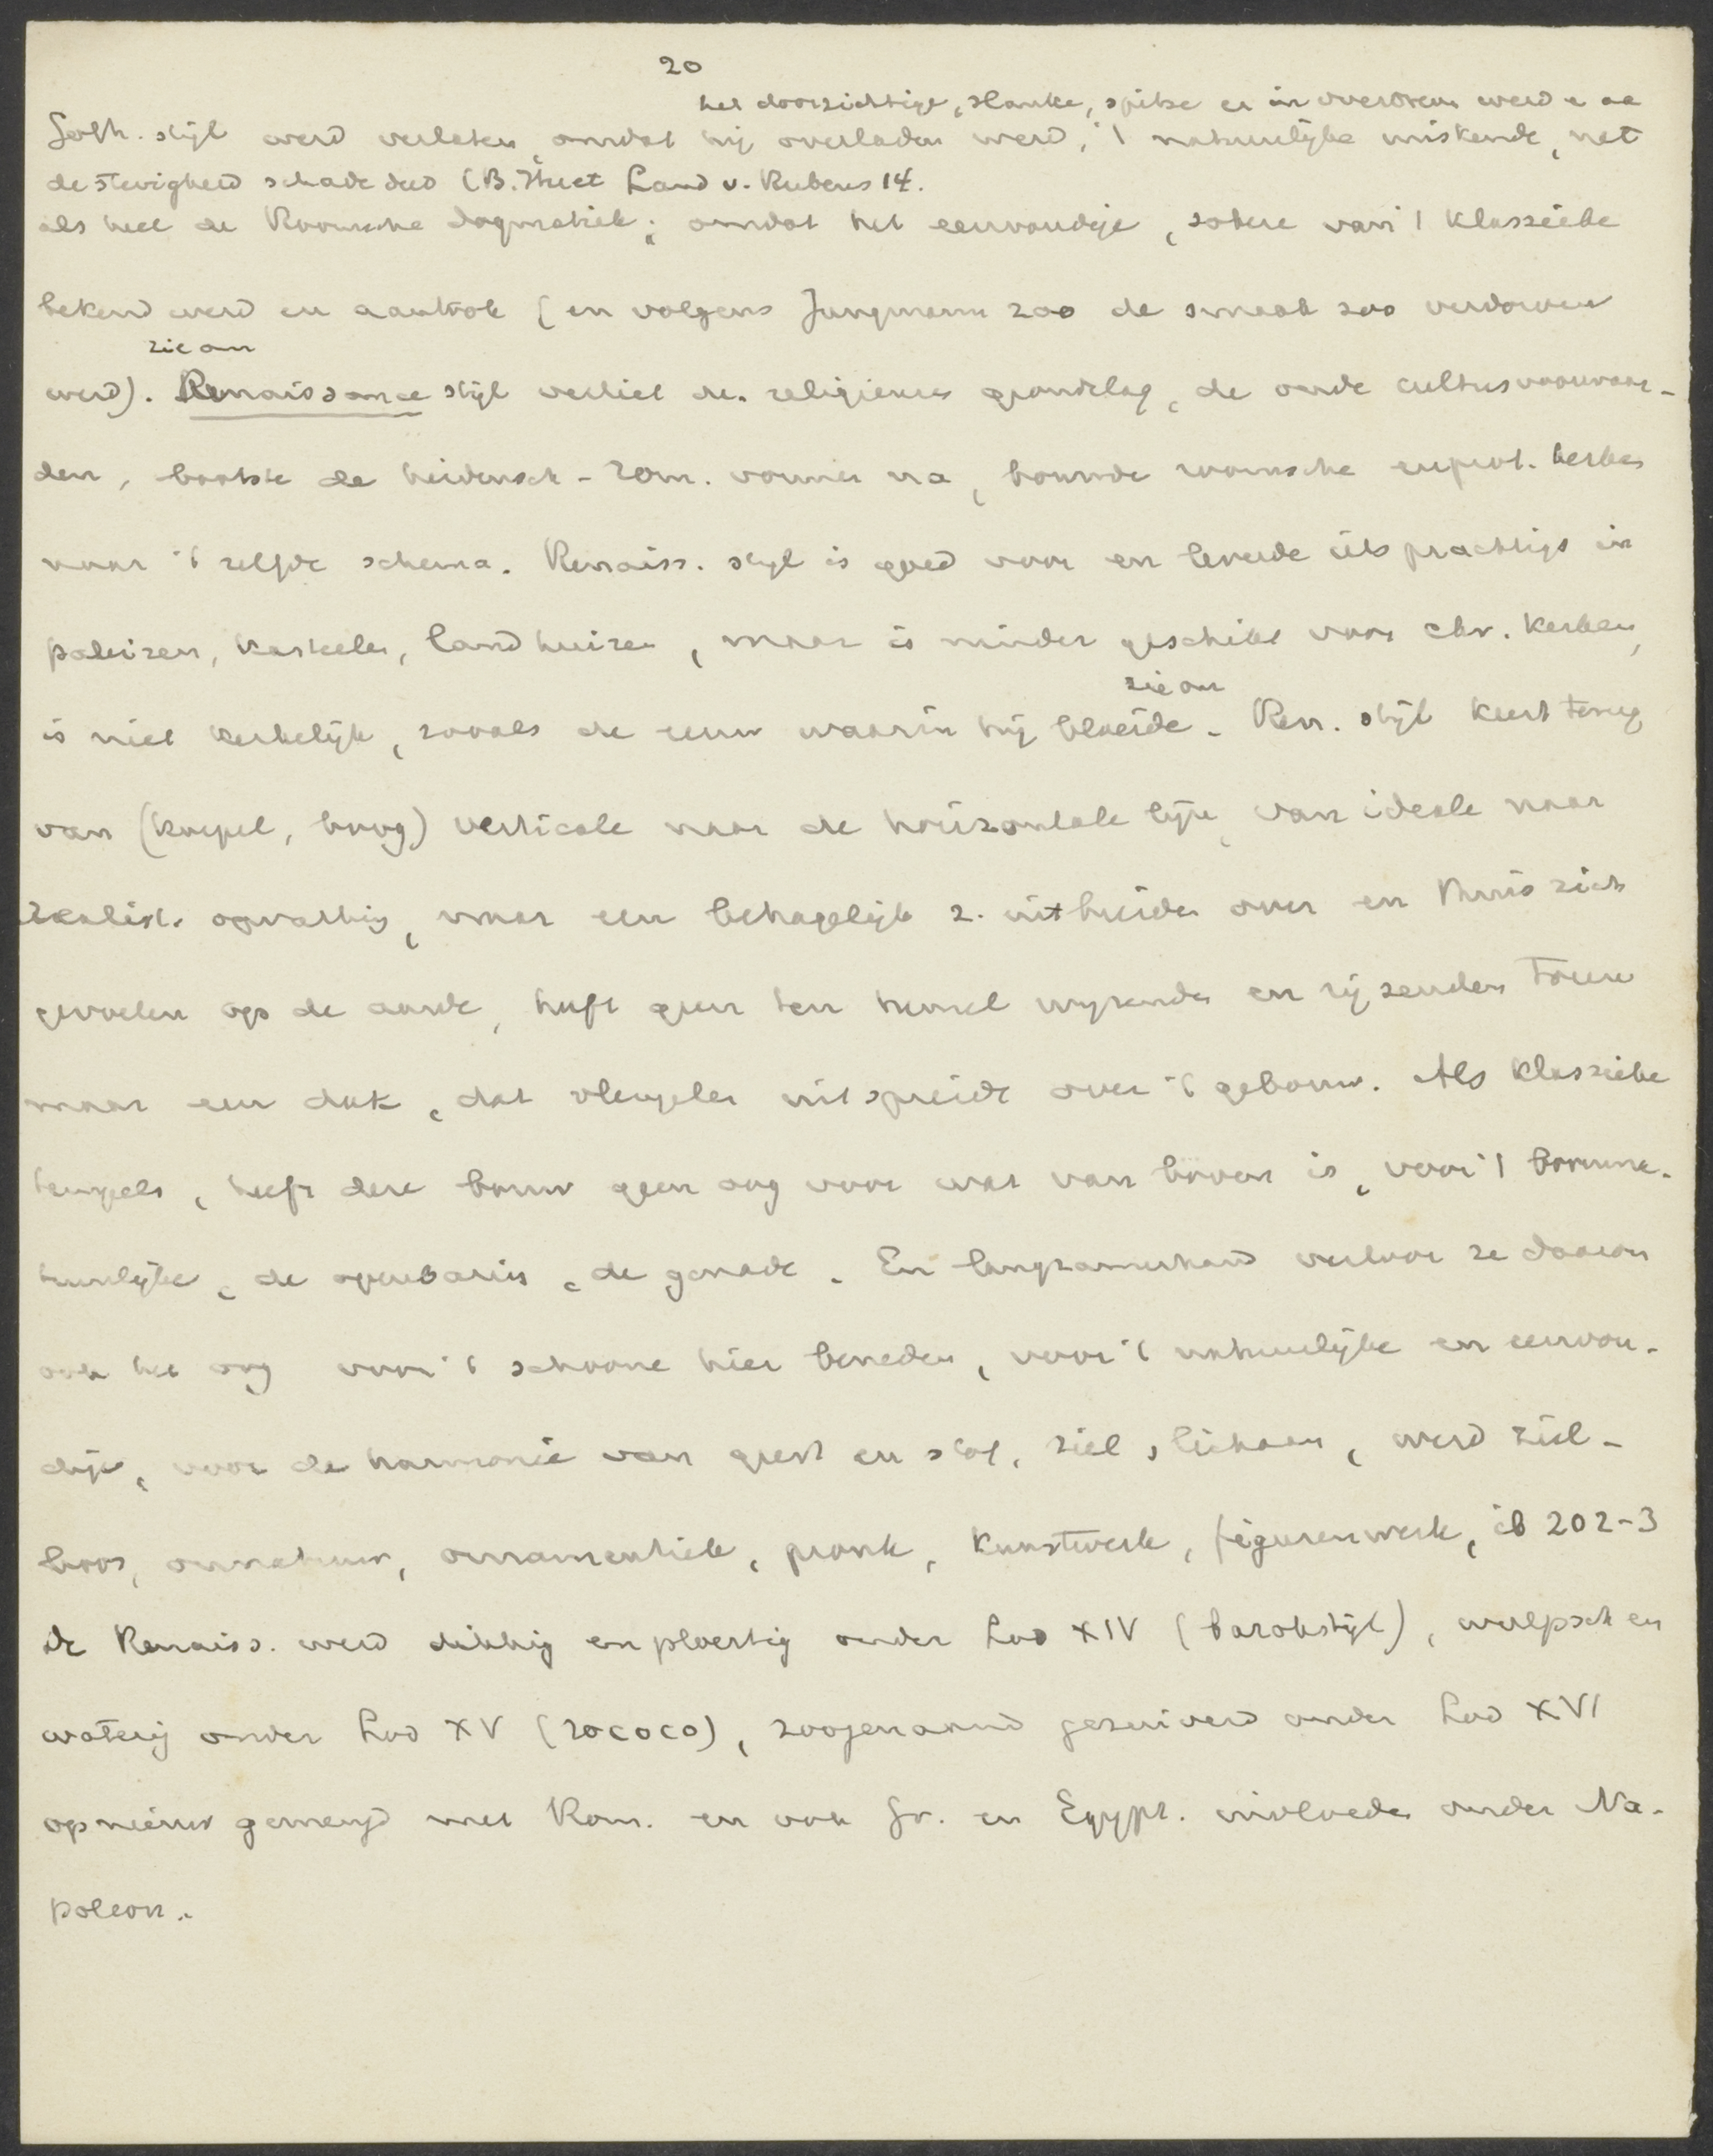 20
het doorzichtige, slanke, spitse er in overdreven werd en aan
Goth. stijl werd verlaten, omdat hij overladen werd, 't natuurlijke miskende, net
de stevigheid schade deed (B. Huet Land v. Rubens 14.
als heel de Roomsche dogmatiek; omdat het eenvoudige, sobere van 't klassieke
bekend werd en aantrok (en volgens Jungmann zoo de smaak zoo verdorven
zie om
werd). Renaissance stijl verliet de religieuse grondslag, de oude cultusvoorwaar-
den, bootste de heidensch-rom. vormen na, bouwde roomsche en prot. kerken
naar 't zelfde schema. Renaiss. stijl is goed voor en leverde iets prachtigs in
paleizen, kasteelen, landhuizen, maar is minder geschikt voor chr. kerken,
zie om
is niet kerkelijk, zooals de eeuw waarin hij bloeide. Ren. stijl keert terug
van (koepel, boog) verticale naar de horizontale lijn, van ideale naar
realist. opvatting, naar een behagelijk z. uitbreiden over en thuis zich
gevoelen op de aarde, heeft geen ten hemel wijzenden en rijzenden toren
maar een dak, dat vleugelen uitspreidt over 't gebouw. Als klassieke
tempels, heeft deze bouw geen oog voor wat van boven is, voor 't bovenna-
tuurlijke, de openbaring, de genade. En langzamerhand verloor ze daarom
ook het oog voor 't schoone hier beneden, voor 't natuurlijke en eenvou-
dige, voor de harmonie van geest en stof, ziel, lichaam, werd ziel-
loos, onnatuur, ornamentiek, pronk, kunstwerk, figurenwerk, ib 202-3
de Renaiss. werd dikkig en ploertig onder Lod XIV (barokstijl), wulpsch en
waterig onder Lod XV (rococo), zoogenaamd gezuiverd onder Lod XVI
opnieuw gemengd met Rom. en ook Gr. en Egypt. invloeden onder Na-
poleon.